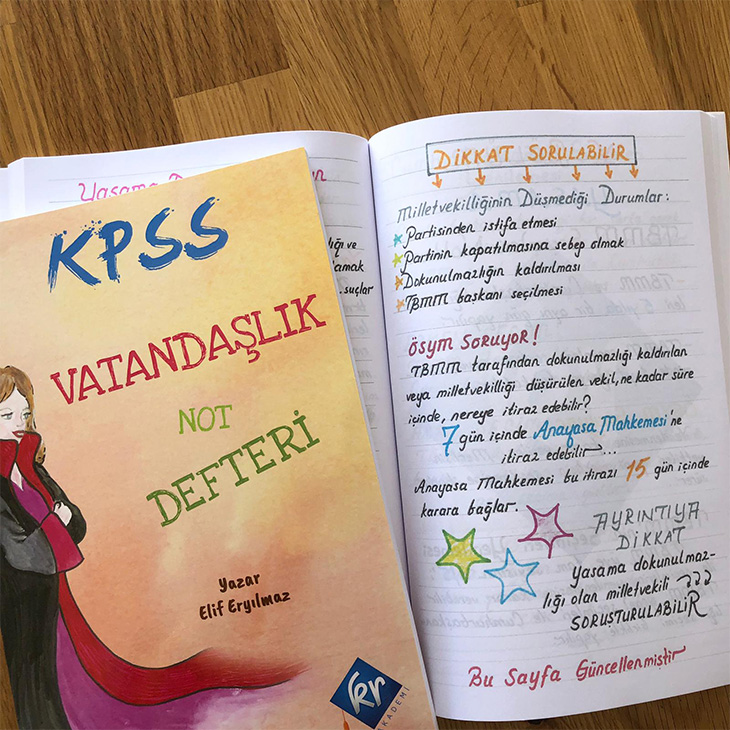 Yasama
KPSS
VATANDAŞLIK
NOT
DEFTERİ
Yazar
Elif Eryılmaz
kr
AKADEMİ
ığı ve
amak
suçlar
DİKKAT SORULABİLİR
Milletvekilliğinin Düşmediği Durumlar:
Partisinden istifa etmesi
Partinin kapatılmasına sebep olmak
Dokunulmazlığın kaldırılması
TBMM başkanı seçilmesi
ÖSYM SORUYOR!
TBMM tarafından dokunulmazlığı kaldırılan
veya milletvekilliği düşürülen vekil, ne kadar süre
içinde, nereye itiraz edebilir?
7 gün içinde Anayasa Mahkemesi'ne
itiraz edebilir...
Anayasa Mahkemesi bu itirazı 15 gün içinde
karara bağlar.
AYRINTIYA
DİKKAT
Yasama dokunulmaz-
lığı olan milletvekili
SORUŞTURULABİLİR
Bu Sayfa Güncellenmiştir